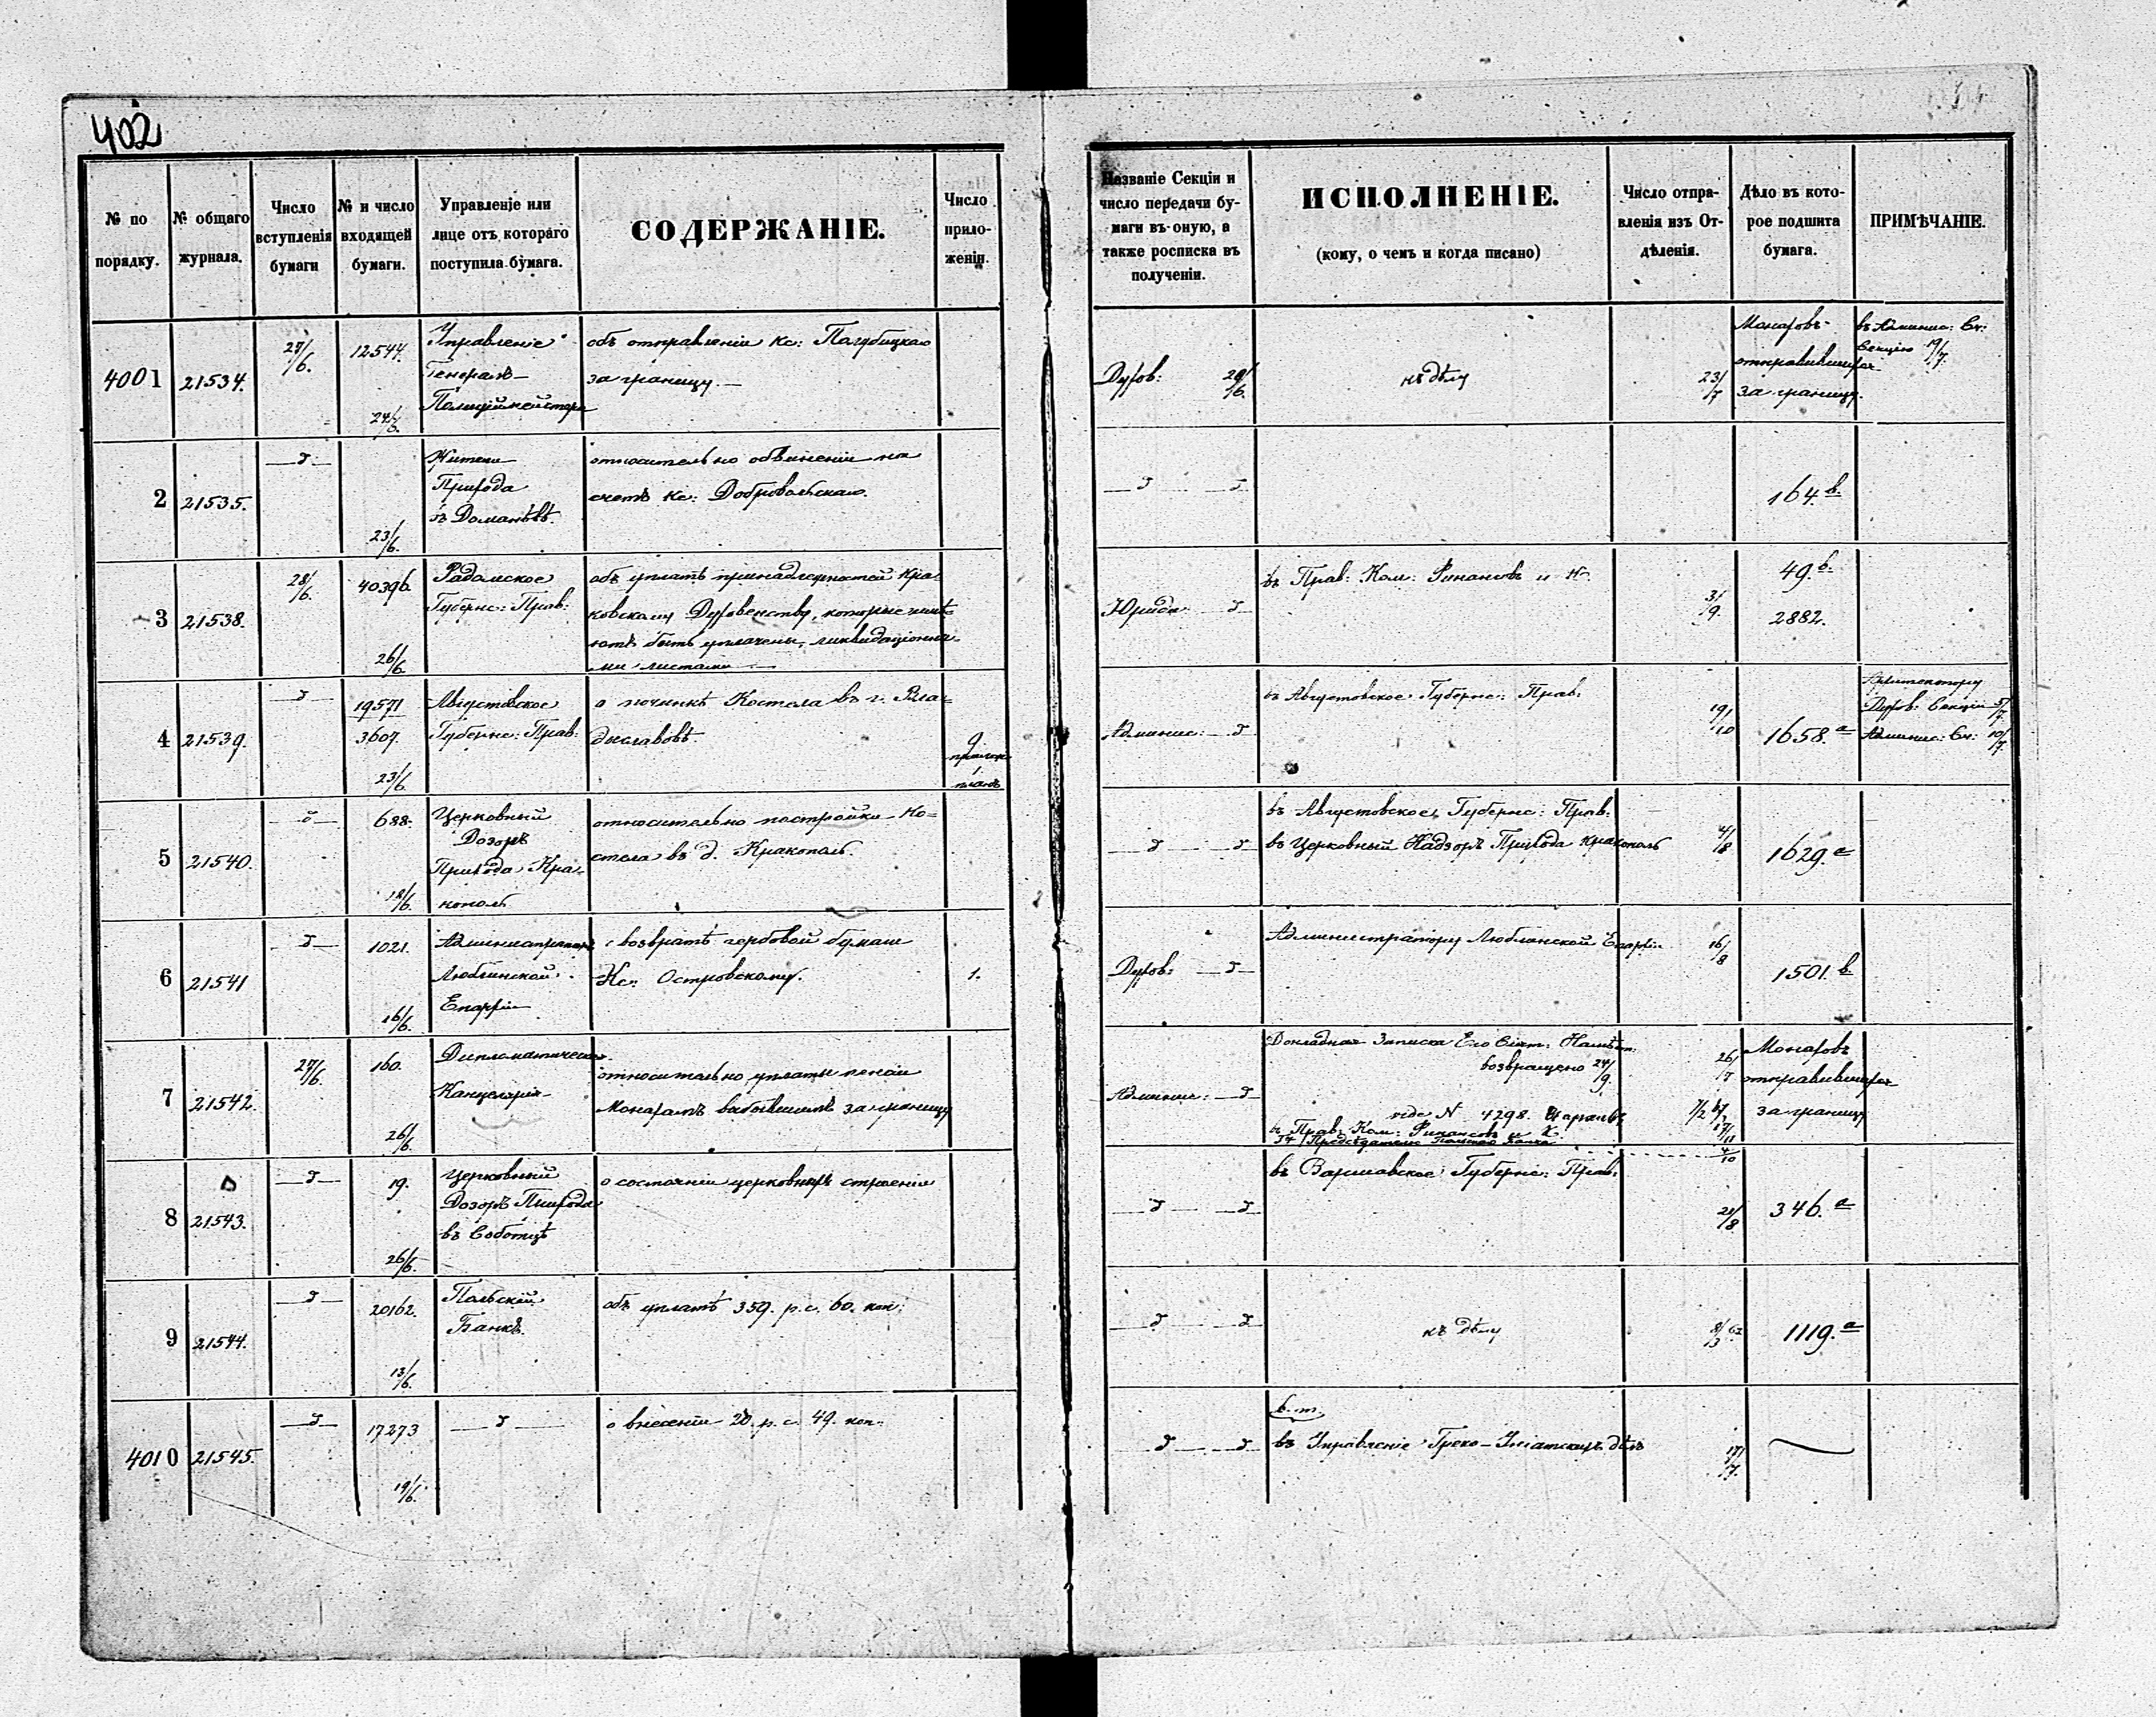 402
№ по порядку.
№ общаго журнала.
Число вступленія бумаги
№ и число входящей бумаги.
Управленіе или лице отъ котораго поступила бумага.
СОДЕРЖАНІЕ.
Число прило-
женій.
Названіе Секціи и
число передачи бу-
маги въ оную, а
также росписка въ
полученіи.
ИСПОЛНЕНІЕ.
(кому, о чемъ и когда писано)
Число отпра-
вленія изъ От-
дѣленія.
Дѣло въ кото-
рое подшита
бумага.
ПРИМѢЧАНІЕ.
4001
21534.
27/6.
12544.
24/6.
Управленіе
Генералъ-
Полиціймейстера
объ отправленіи Кс:
за границу.
Духов:
29/6.
къ дѣлу
23/7
Монаховъ
отправившихся
за границу.
въ Админис: Сч:
Секцію 19/7.
2
21535.
23/6.
Жители
Прихода
въ
относительно обвиненіи на
счетъ Кс: Добровольскаго.
164.b.
3
21538.
28/6.
40396.
26/6.
Радомское
Губернс: Прав:
объ уплатѣ принадлежностей Кра-
ковскому Духовенству, которые имѣ-
ютъ быть уплачены, ликвидаціонны-
ми листами
Юридич.
въ Прав: Ком: Финансовъ и К.
3/9.
49.b.
2882.
4
21539.
19571
3607.
23/6.
Августовское
Губернс: Прав:
о починкѣ Костела въ г. Вла-
диславовѣ.
9
прилож
1
планъ
Админис:
въ Августовское Губернс: Прав:
19/10
1658.a
Архитектору
Духов: Секціи 5/7
Админис: Сч: 10/7.
5
21540.
688.
18/6.
Церковный
Дозоръ
Прихода Кра-
кополь
относительно постройки Ко-
стела въ д. Кракополь.
въ Августовское Губернс: Прав:
въ Церковный Надзоръ Прихода Кракополь
4/8
1629.a
6
21541
1021.
16/6.
Администраторъ
Люблинской
Епархіи
о возвратѣ гербовой бумаги
Кс: Островскому.
1.
Духов:
Администратору Люблинской Епархіи
16/8
1501.b
7
21542.
27/6.
160.
26/6.
Дипломатическая
Канцелярія
относительно уплаты пенсіи
Монахамъ выбывшимъ за границу
Админис:
Докладная Записка Его Сіят: Намѣст:
возвращено 24/9.
vide N 4298.
въ Прав: Ком: Финансовъ и К
Предсѣдателю Польскаго Банка
26/7
17/11
4/10
Монаховъ
отправившихся
за границу
8
21543.
19.
26/6.
Церковный
Дозоръ Прихода
въ Соботцѣ
о состояніи церковныхъ строеній
въ Варшавское Губернс: Прав:
21/8
346.a
9
21544.
20162.
13/6.
Польскій
Банкъ.
объ уплатѣ 359. р. с. 60. коп:
къ дѣлу
8/3
1119.a
4010
21545.
17273
19/6.
о внесеніи 20. р. с. 49. коп.
въ Управленіе Греко-Уніатскихъ дѣлъ
17/7.